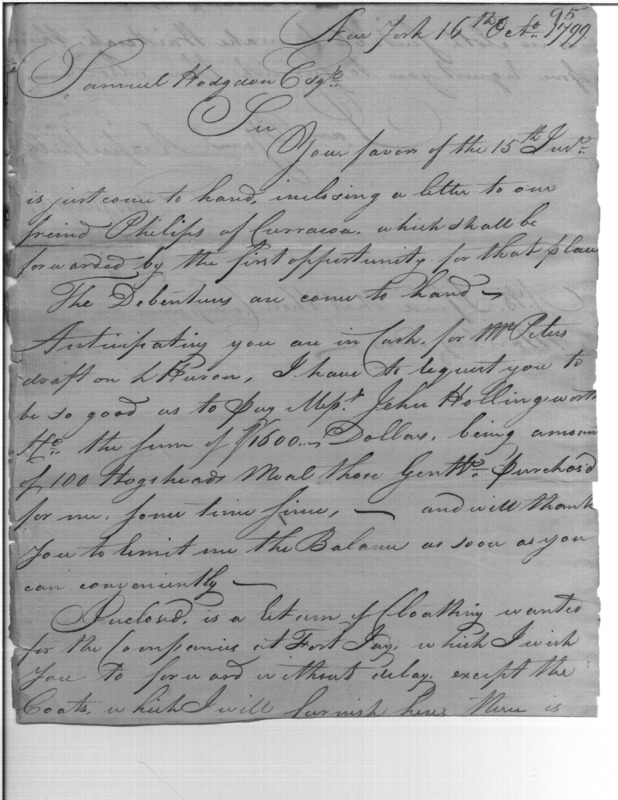 New York 16th Octo. 1799
95
Samuel Hodgdon Esqr.
Sir
Your favor of the 15th Inst.
is just come to hand, inclosing a letter to our
freind Philips of Curracoa. which shall be
forwarded by the first opportunity for that place
The Debentures are come to hand —
Anticipating you are in Cash, for Mr. Peters
draft on L Huron, I have to request you to
be so good as to pay Messrs. Jehu Hollingsworth
& Co. the sum of $1600 .. Dollars, being amount
of 100 Hogsheads Meal those Gentn. purchas'd
for me, some time since, — and will thank
you to remit me the Balance as soon as you
can conveniently —
Inclosed, is a return of Cloathing wanted
for the Companies at Fort Jay, which I wish
you to forward without delay, except the
Coats, which I will furnish here, there is